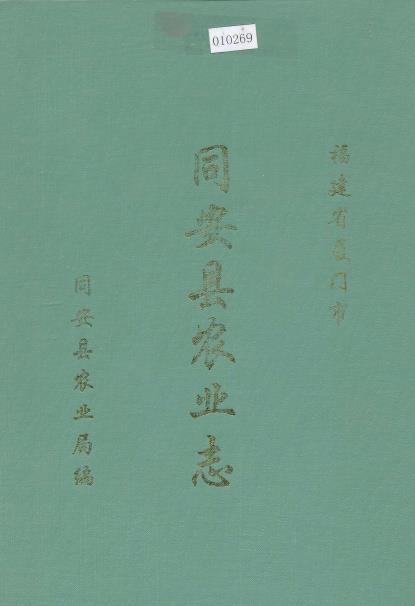 010269
福建省厦门市
同安县农业志
同安县农业局编